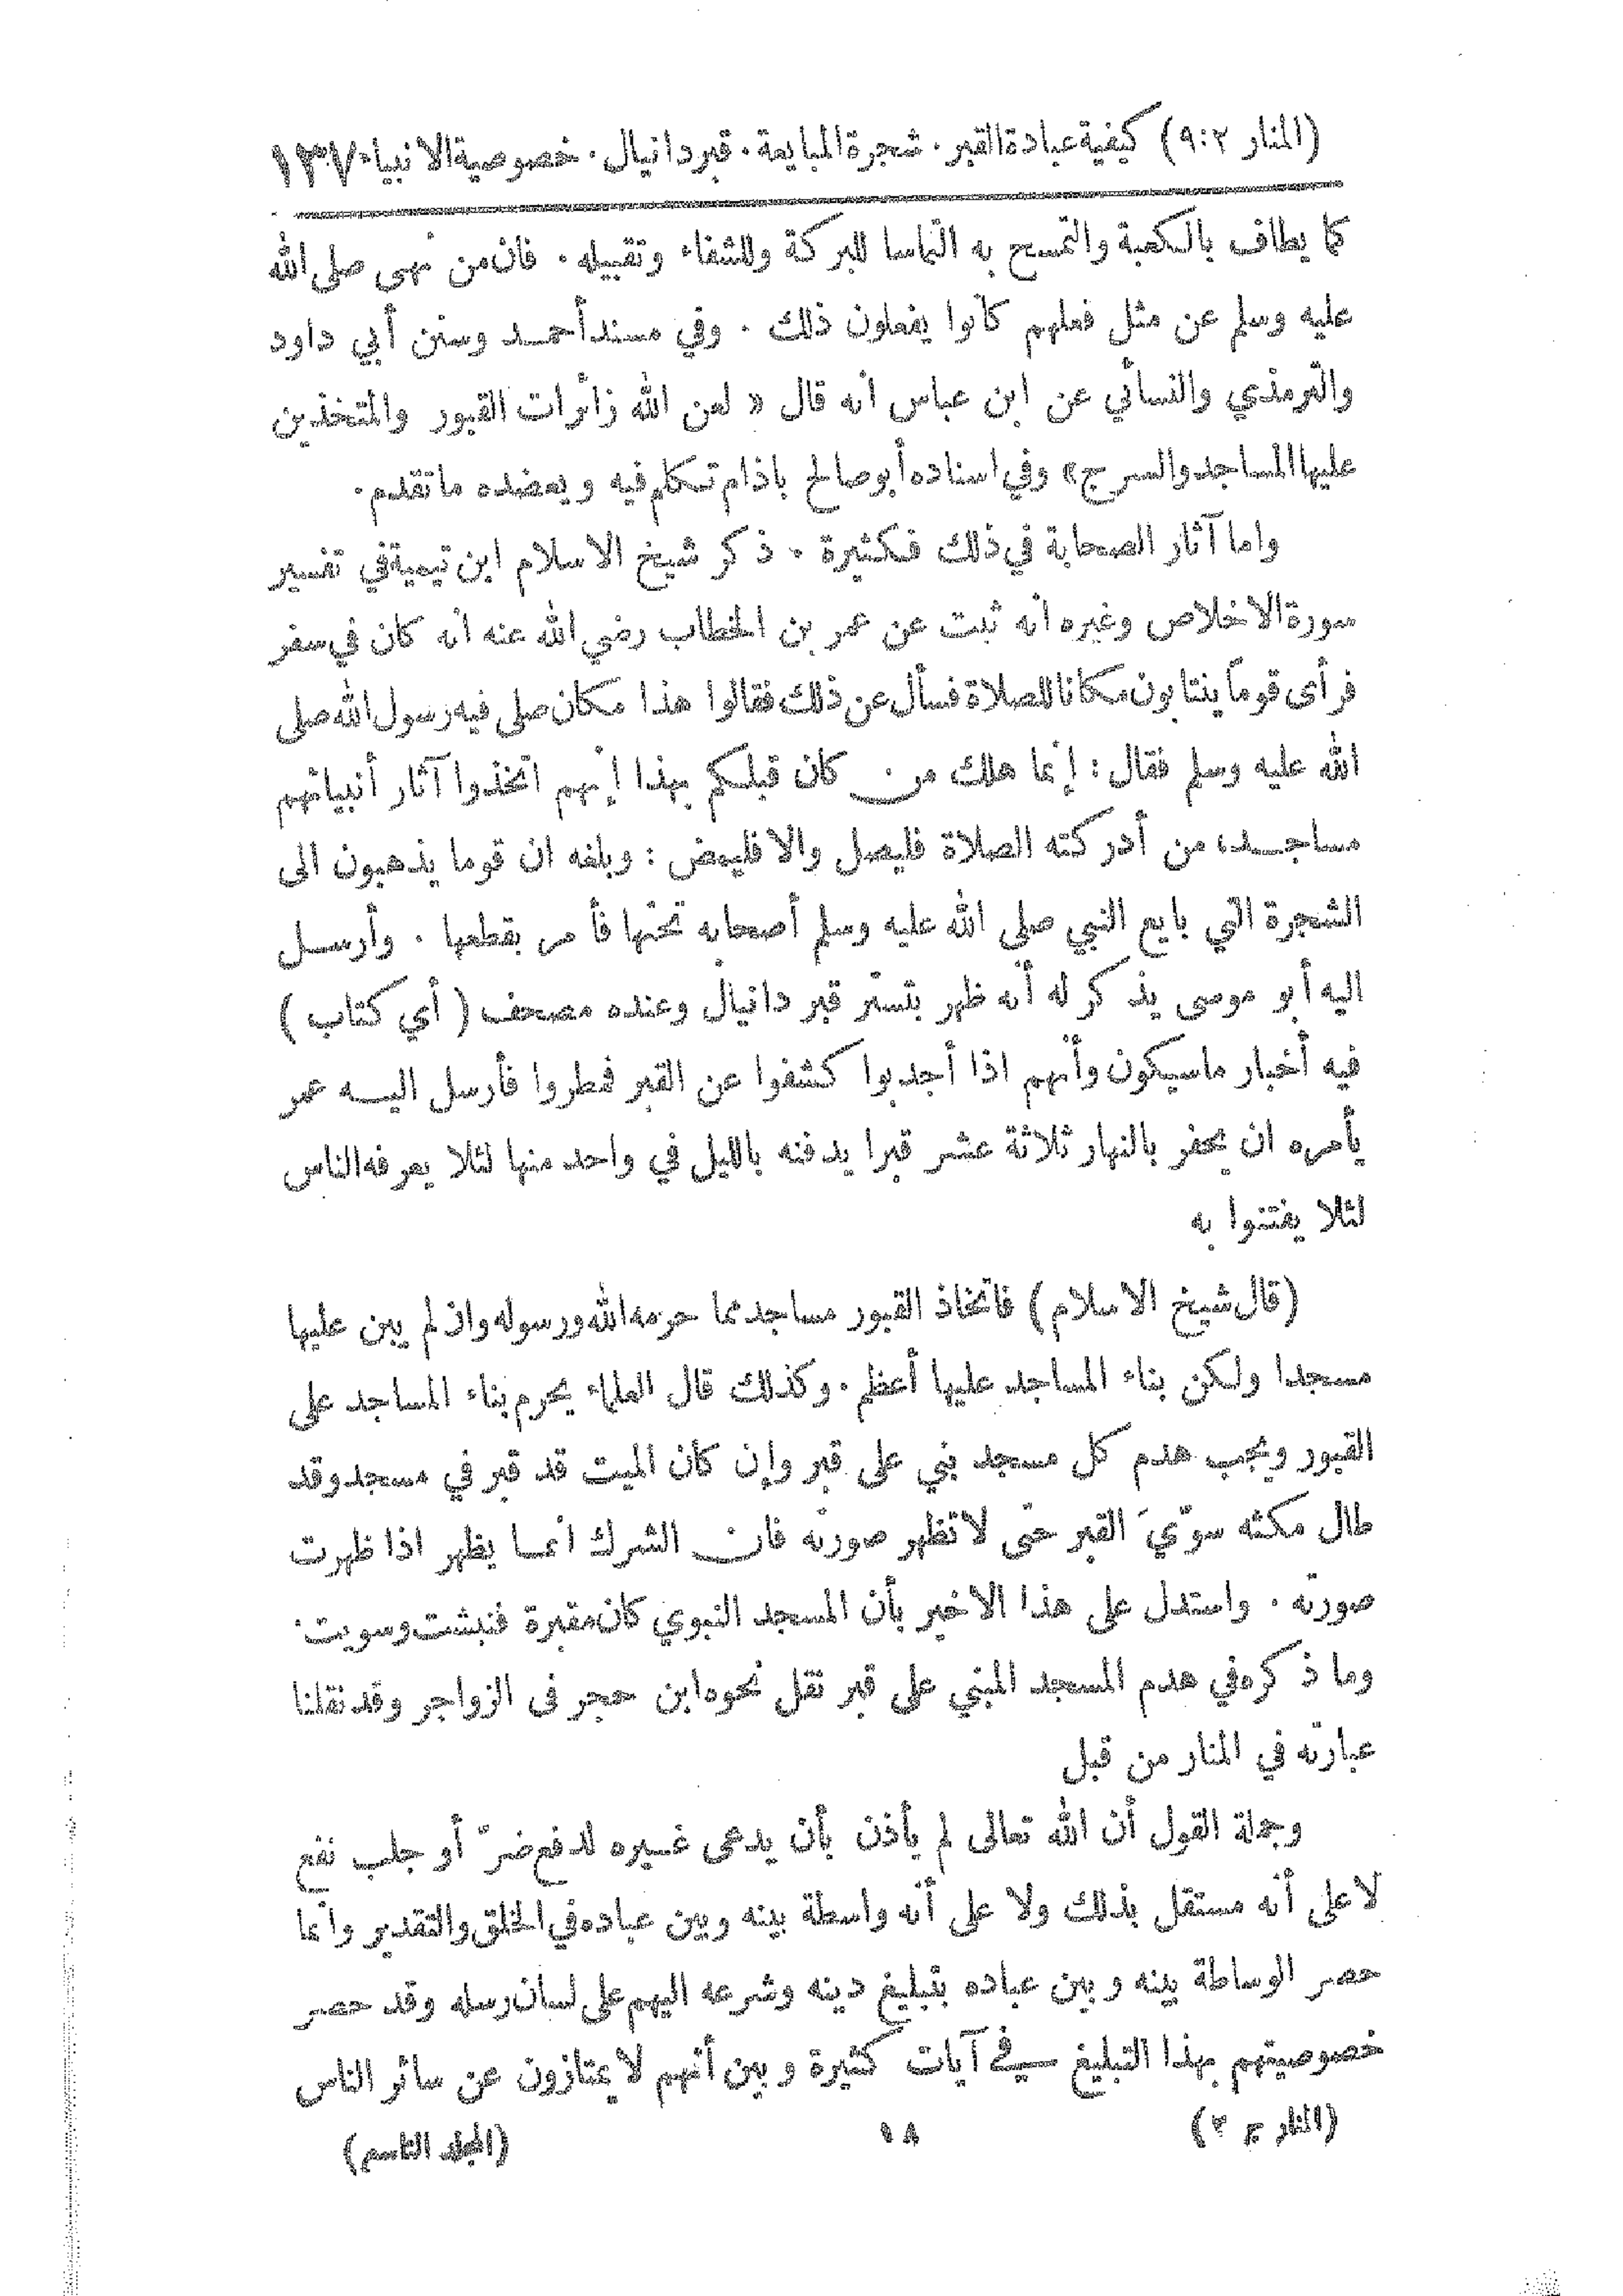 (المنار ٩:٢) كيفية عبادة القبر . شجرة المبايعة . قبر دانيال . خصوصية الانبياء ١٣٧
كما يطاف بالكعبة والتمسح به التماسا للبركة وللشفاء وتقبيله . فان من نهى صلى الله
عليه وسلم عن مثل فعلهم كانوا يفعلون ذلك . وفي مسند أحمد وسنن أبي داود
والترمذي والنسائي عن ابن عباس أنه قال « لعن الله زائرات القبور والمتخذين
عليها المساجد والسرج» وفي اسناده أبو صالح باذام تكلم فيه ويعضده ما تقدم .
واما آثار الصحابة في ذلك فكثيرة . ذكر شيخ الاسلام ابن تيمية في تفسير
سورة الاخلاص وغيره أنه ثبت عن عمر بن الخطاب رضي الله عنه أنه كان في سفر
فرأى قوماً ينتابون مكانا للصلاة فسأل عن ذلك فقالوا هذا مكان صلى فيه رسول الله صلى
الله عليه وسلم فقال : إنما هلك من كان قبلكم بهذا إنهم اتخذوا آثار أنبيائهم
مساجد، من أدركته الصلاة فليصل والا فليمض : وبلغه ان قوما يذهبون الى
الشجرة التي بايع النبي صلى الله عليه وسلم أصحابه تحتها فأمر بقطعها . وأرسل
اليه أبو موسى يذكر له أنه ظهر بتستر قبر دانيال وعنده مصحف ( أي كتاب )
فيه أخبار ما سيكون وأنهم اذا أجدبوا كشفوا عن القبر فمطروا فأرسل اليه عمر
يأمره ان يحفر بالنهار ثلاثة عشر قبرا يدفنه بالليل في واحد منها لئلا يعرفه الناس
لئلا يفتنوا به
(قال شيخ الاسلام) فاتخاذ القبور مساجد مما حرمه الله ورسوله وان لم يبن عليها
مسجدا ولكن بناء المساجد عليها أعظم . وكذلك قال العلماء يحرم بناء المساجد على
القبور ويجب هدم كل مسجد بني على قبر وإن كان الميت قد قبر في مسجد وقد
طال مكثه سوّيَ القبر حتى لا تظهر صورته فان الشرك انما يظهر اذا ظهرت
صورته . واستدل على هذا الاخير بأن المسجد النبوي كان مقبرة فنبشت وسويت .
وما ذكره في هدم المسجد المبني على قبر نقل نحوه ابن حجر فى الزواجر وقد نقلنا
عبارته في المنار من قبل
وجملة القول أن الله تعالى لم يأذن بأن يدعى غيره لدفع ضرّ أو جلب نفع
لا على أنه مستقل بذلك ولا على أنه واسطة بينه وبين عباده في الخلق والتقدير وانما
حصر الوساطة بينه وبين عباده بتبليغ دينه وشرعه اليهم على لسان رسله وقد حصر
خصوصيتهم بهذا التبليغ في آيات كثيرة وبين أنهم لا يمتازون عن سائر الناس
(المنار ج ٢) ١٨ (المجلد التاسع)